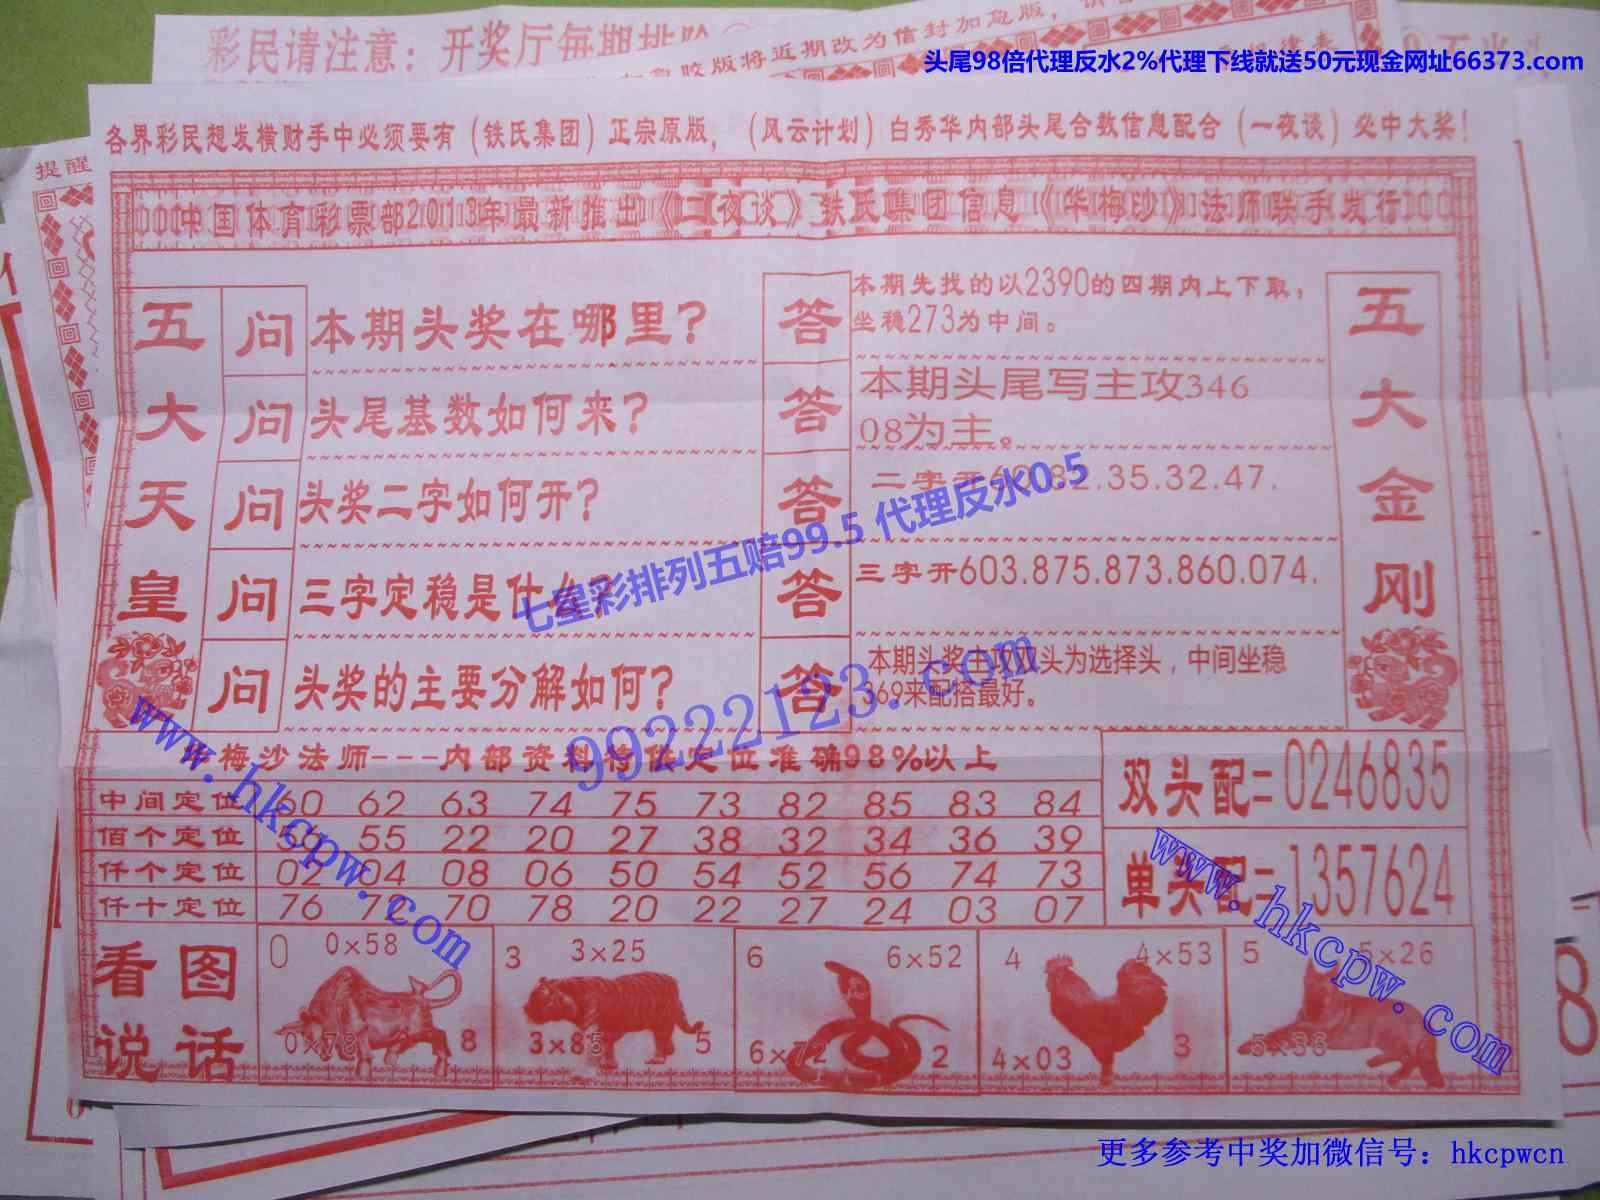 彩民请注意：开奖厅每期排
胶版将近期改为信封加急版，
头尾98倍代理反水2%代理下线就送50元现金网址66373.com
提醒
各界彩民想发横财手中必须要有（铁氏集团）正宗原版，（风云计划）白秀华内部头尾合数信息配合（一夜谈）必中大奖！
中国体育彩票部2013年最新推出《二夜谈》铁氏集团信息《华梅沙》法师联手发行
五大天皇
问 本期头奖在哪里？
答 本期先找的以2390的四期内上下取，
坐稳273为中间。
问 头尾基数如何来？
答 本期头尾写主攻346
08为主。
问 头奖二字如何开？
答 二字开60.82.35.32.47.
问 三字定稳是什么？
答 三字开603.875.873.860.074.
问 头奖的主要分解如何？
答 本期头奖主攻双头为选择头，中间坐稳
369来配搭最好。
五大金刚
七星彩排列五赔99.5 代理反水0.5
99222123.com
www.hkcpw.com
华梅沙法师---内部资料特供定位准确98%以上
中间定位 60 62 63 74 75 73 82 85 83 84
佰个定位 56 55 22 20 27 38 32 34 36 39
仟个定位 02 04 08 06 50 54 52 56 74 73
仟十定位 76 72 70 78 20 22 27 24 03 07
双头配=0246835
单头配=1357624
www.hkcpw.com
看图
说话
0 0×58
0×78 8
3 3×25
3×85 5
6 6×52
6×72 2
4 4×53
4×03 3
5 5×26
5×36
8
更多参考中奖加微信号：hkcpwcn